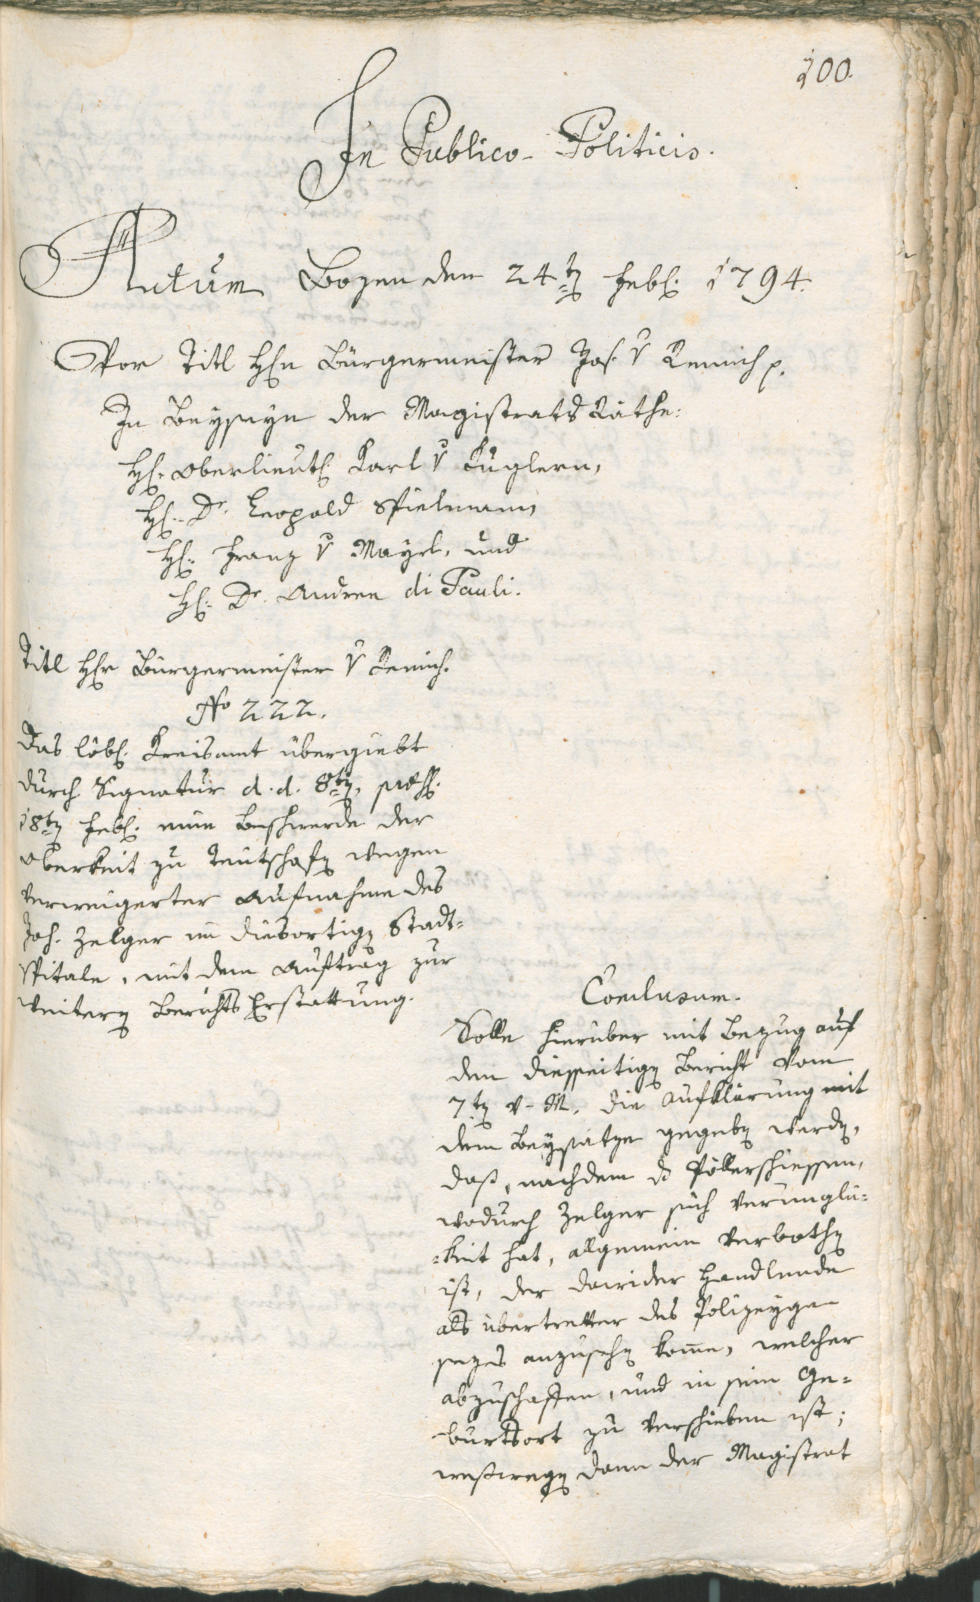 100.
In Publico-Politicis.
Actum Bozen den 24tn Febr. 1794.
Vor Titl Hrn Bürgermeister Jos. v Remich p.
In Beyseyn der Magistrats Räthe:
Hr. Oberlieut. Karl v Zuglern,
Hr. Dr. Leopold Spielmann,
Hr. Franz v Mayrl, und
Hr. Dr. Andreu di Pauli.
Titl Hrn Bürgermeister v Remich.
No 222.
Das löbl. Kreisamt übergiebt
durch Signatur d. d. 8tn, præs.
18tn Febr. eine Beschwerde der
Oberkeit zu Teutschofn wegen
verweigerter Aufnahme des
Joh. Zelger im diesortign Stadt=
spitale, mit dem Auftrag zur
weitern Berichts Erstattung.
Conclusum.
Solle hierüber mit Bezug auf
den diesseitign Bericht vom
7tn v. M. die Aufklärung mit
dem Beysatze gegebn werdn,
daß, nachdem d Pöllerschiessen,
wodurch Zelger sich verunglü=
=ckt hat, allgemein verbothn
ist, der dawider Handlende
als übertretter des Polizeyge
sezes anzusehn kome, welcher
abzuschaffen, und in sein Ge=
burtsort zu verschieben ist;
weßwegn dann der Magistrat